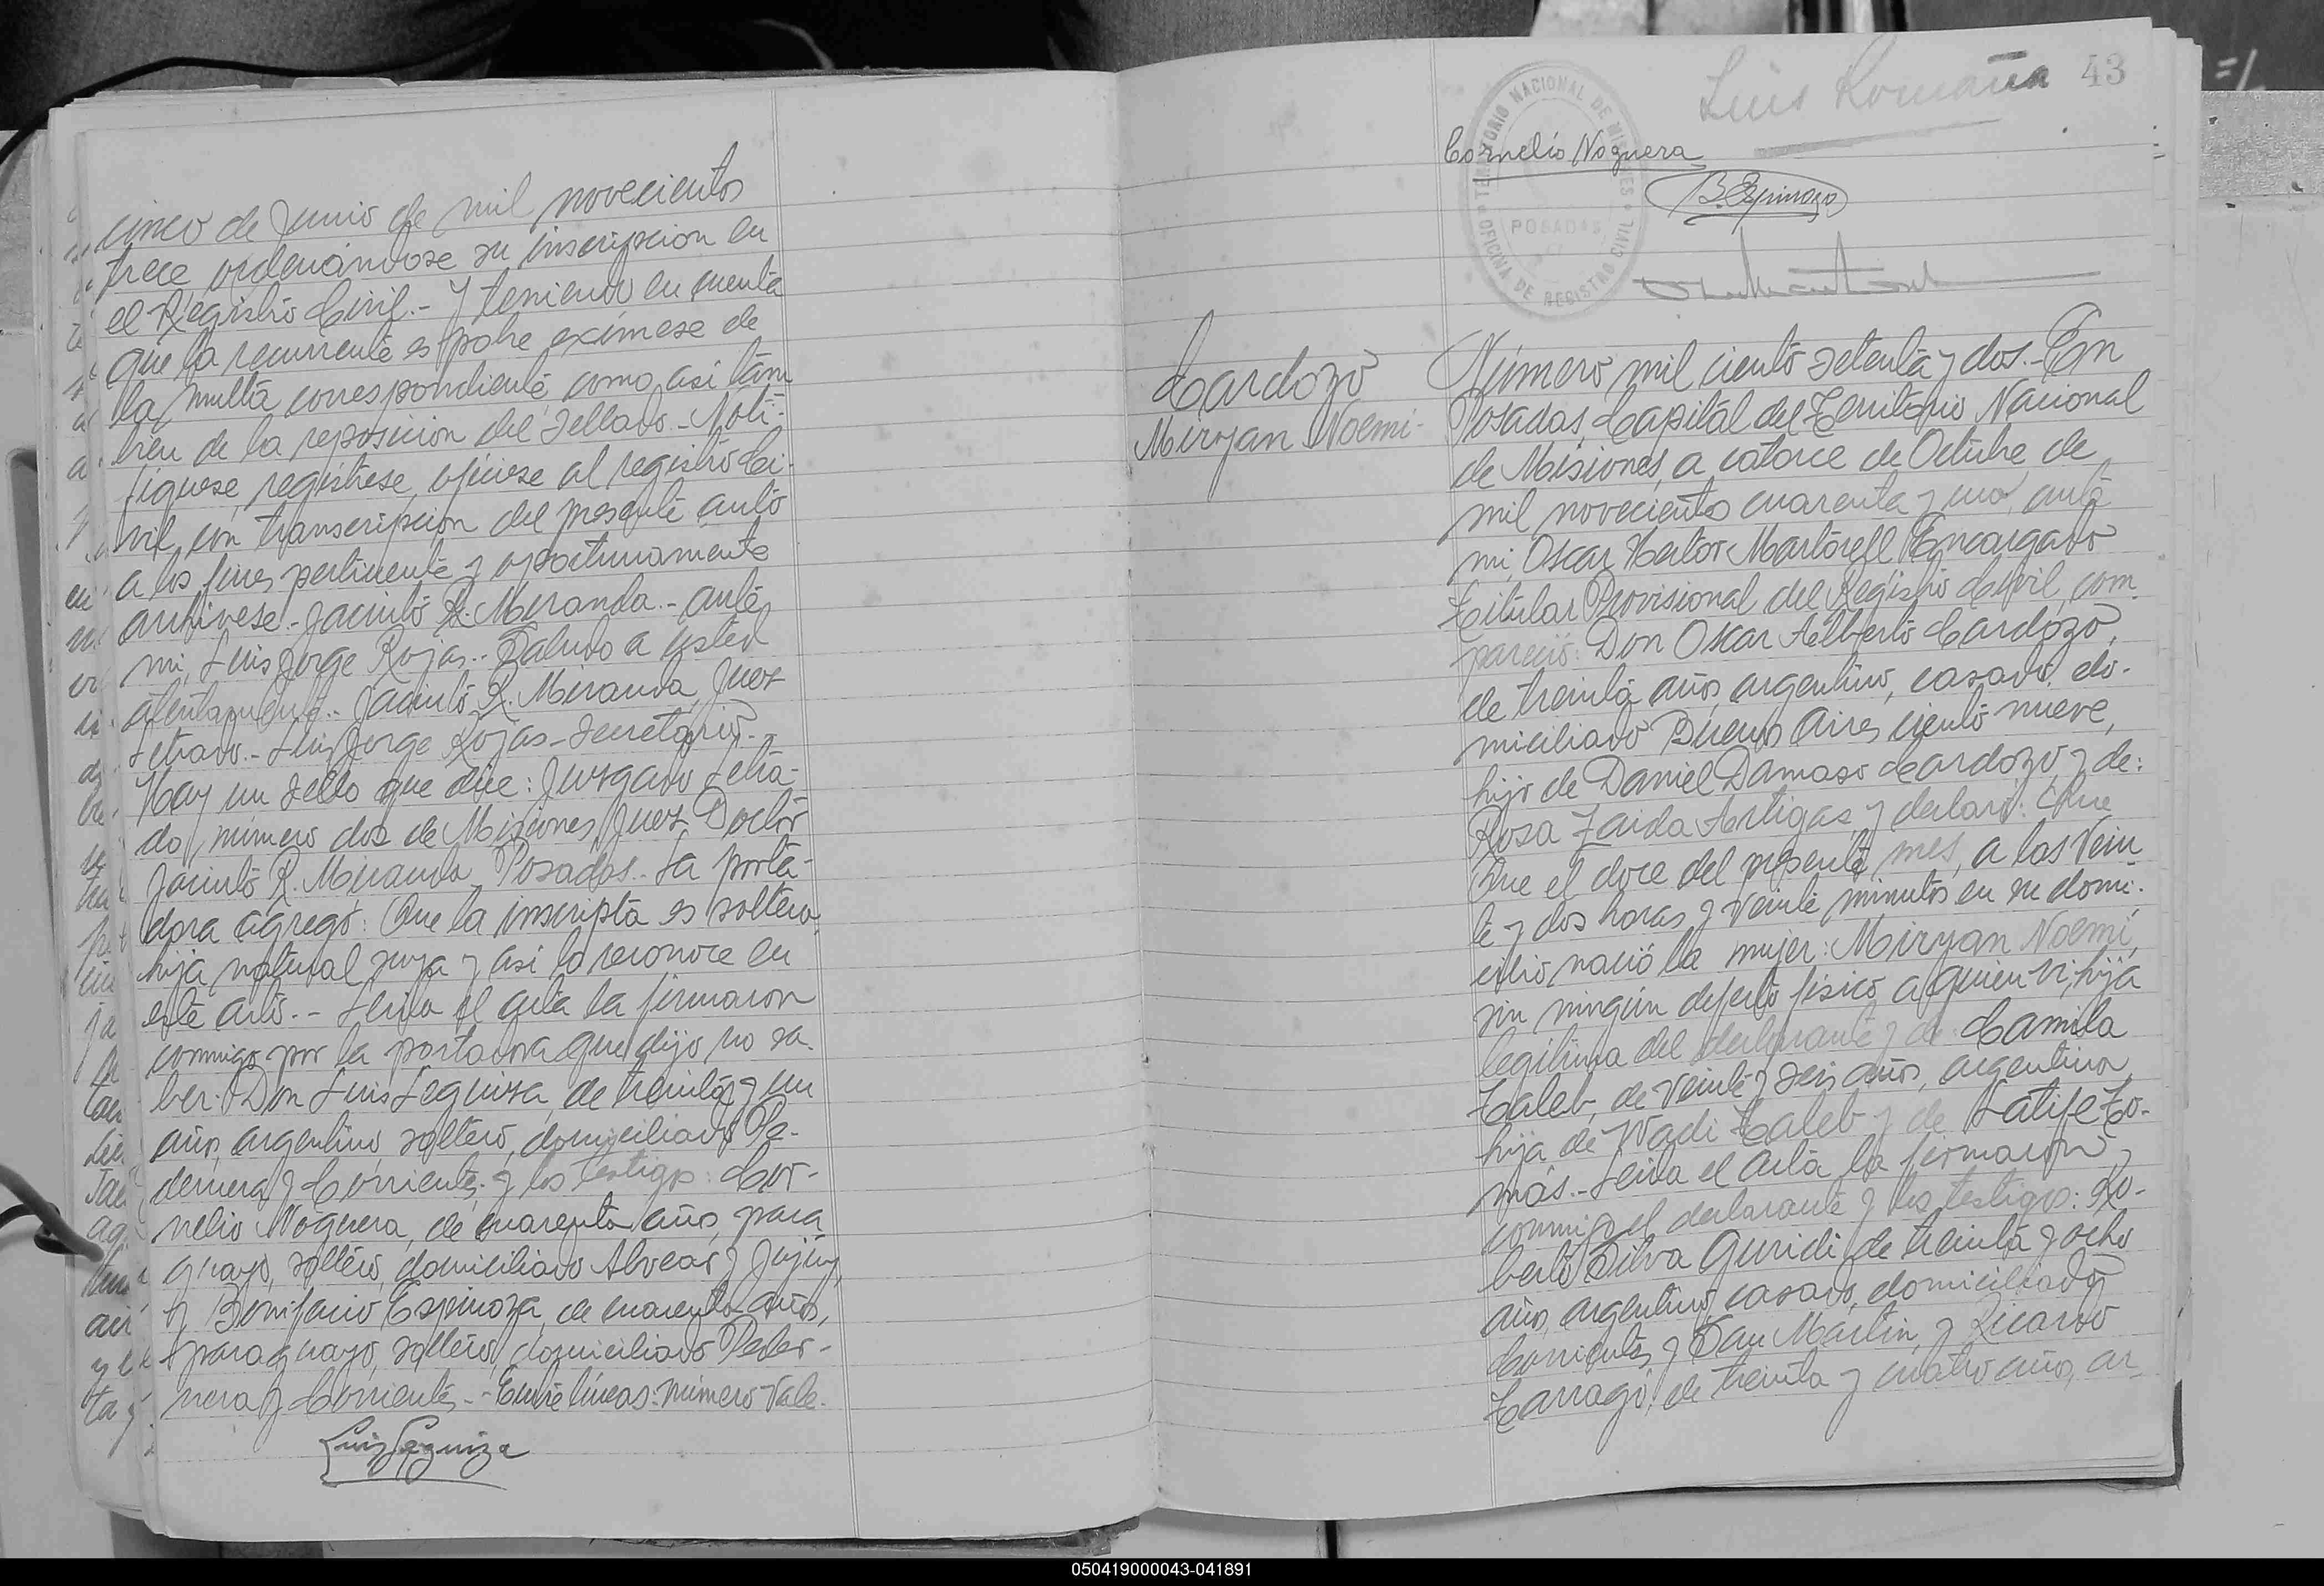 cinco de Junio de mil novecientos
trece ordenándose su inscripcion en
el Registro Civil.- Y teniendo en cuenta
que la recurrente es pobre exímese de
la multa correspondiente, como asi tam
bien de la reposicion del sellado.- Noti-
fiquese, registrese, ofíciese al registro Ci-
vil con transcripcion del presente auto
a los fines pertinente y oportunamente
archívese.- Jacinto R. Miranda.- ante
mi, Luis Jorge Rojas.- Saludo a usted
atentamente.- Jacinto R. Miranda, Juez
Letrado.- Luis Jorge Rojas- Secretario.-
Hay un sello que dice: Juzgado Letra-
do número dos de Misiones, Juez Doctor
Jacinto R. Miranda, Posadas.- La porta-
dora agregó: Que la inscripta es soltera,
hija natural suya y asi lo reconoce en
este acto.- Leida el acta la firmaron
conmigo por la portadora que dijo no sa-
ber: Don Luis Leguiza, de treinta y un
años, argentino, soltero, domiciliado Pe-
dernera y Corrientes; y los testigos: Cor-
nelio Noguera, de cuarenta años, para
guayo, soltero, domiciliado Alvear y Jujuy,
y Bonifacio Espinoza, de cuarenta años,
paraguayo, soltero, domiciliado Peder-
nera y Corrientes.- Entre líneas: número- Vale.
Luis Leguiza
Luis Romaña 43
TERRITORIO NACIONAL DE MISIONES
POSADAS
OFICINA DE REGISTRO CIVIL
Cornelio Noguera
B. Espinoza
Cardozo
Miryan Noemi-
Número mil ciento setenta y dos.- En
Posadas, Capital del Territorio Nacional
de Misiones, a catorce de Octubre de
mil novecientos cuarenta y uno, ante
mi, Oscar Hector Martorell Encargado
Titular Provisional del Registro Civil, com
pareció: Don Oscar Alberto Cardozo,
de treinta años, argentino, casado, do-
miciliado Buenos Aires ciento nueve,
hijo de Daniel Damaso Cardozo, y de:
Rosa Zaida Artigas, y declaró: Que
Que el doce del presente mes, a las vein
te y dos horas y veinte minutos en su domi-
cilio nació la mujer: Miryan Noemi,
sin ningún defecto físico, a quien vi, hija
legítima del declarante y de: Camila
Taleb, de veinte y seis años, argentina,
hija de Wadi Taleb y de Latife To-
más.- Leida el acta la firmaron
conmigo el declarante y los testigos: Ro-
berto Silva Guridi, de treinta y ocho
años, argentino, casado, domiciliado
Corrientes y San Martin, y Ricardo
Tarragó, de treinta y cuatro años, ar
050419000043-041891